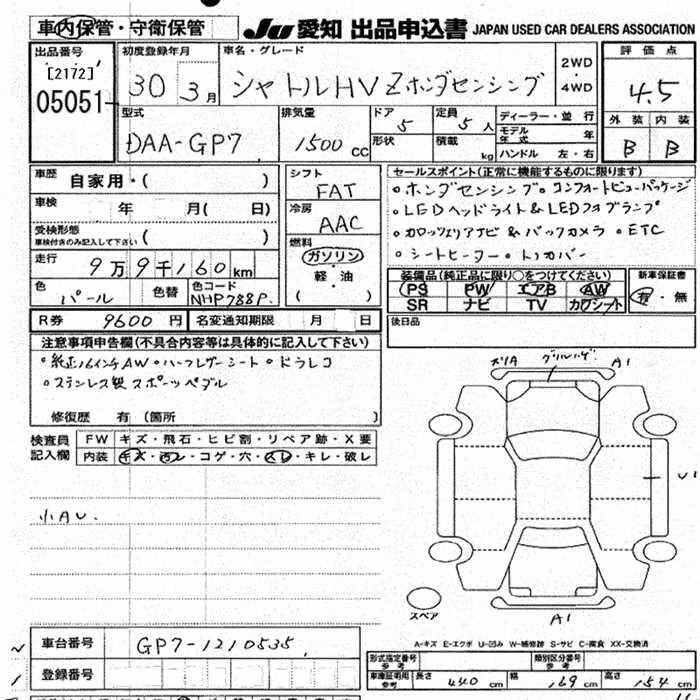 車内保管・守衛保管 JU 愛知 出品申込書 JAPAN USED CAR DEALERS ASSOCIATION
出品番号 初度登録年月 車名・グレード 2WD・4WD 評価点
[2172]
05051 30 3月 シャトルHV Zホンダセンシング 4.5
型式 排気量 ドア 定員 ディーラー・並行 外装 内装
DAA-GP7 1500cc 5 5人 モデル年式 年 B B
形状 積載 kg ハンドル 左・右
車歴 自家用・( ) シフト セールスポイント(正常に機能するものに限ります)
FAT ・ホンダセンシング・コンフォートビューパッケージ
車検 年 月( 日) 冷房 ・LEDヘッドライト&LEDフォグランプ
受検形態 AAC ・カロッツェリアナビ&バックカメラ・ETC
車検付きのみ記入して下さい ( ) 燃料 ・シートヒーター・トノカバー
走行 9万9千160km ガソリン 装備品(純正品に限り○をつけてください) 新車保証書
色 色替 色コード 軽・油 PS PW エアB AW 有・無
パール NHP788P ( ) SR ナビ TV カワシート
R券 9600円 名変通知期限 月 日 後日品
注意事項申告欄(不具合内容等は具体的に記入して下さい)
・純正16インチAW・ハーフレザーシート・ドラレコ
・ステンレス製スポーツペダル
修復歴 有(箇所 )
ズリA グリルハゲ A1
検査員記入欄 FW キズ・飛石・ヒビ割・リペア跡・X要
内装 キズ・汚レ・コゲ・穴・スレ・キレ・破レ
U1
小AU.
スペア A1
A-キズ E-エクボ U-凹み W-補修跡 S-サビ C-腐食 XX-交換済
車台番号 GP7-1210535
形式指定番号 参考 類別区分番号 参考
登録番号 車庫証明用参考 長さ 440cm 幅 169cm 高さ 154cm